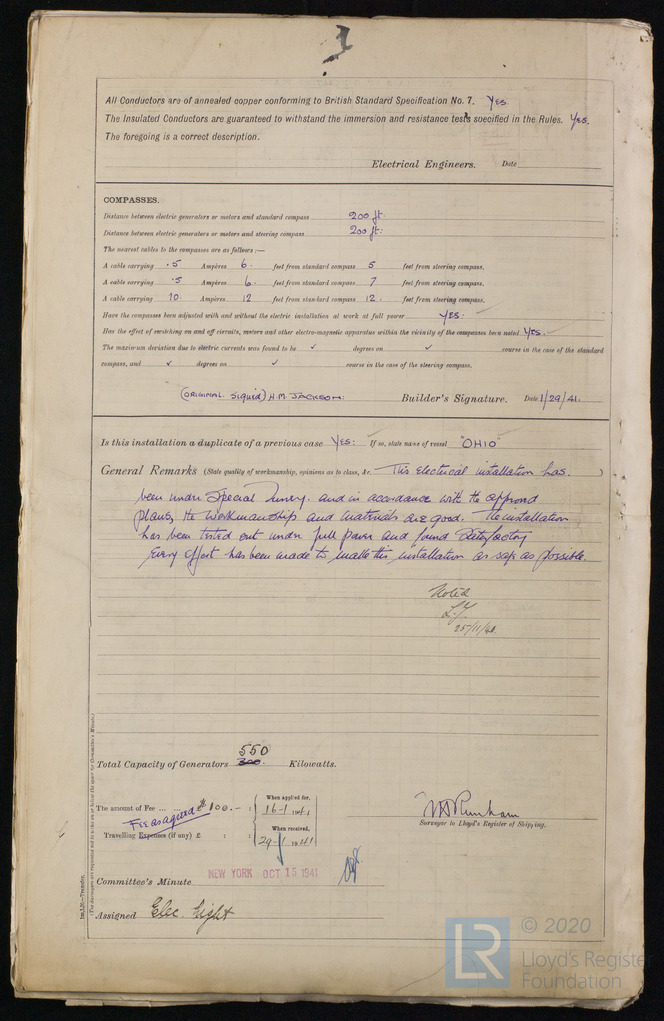 All Conductors are of annealed copper conforming to British Standard Specification No. 7. YES.
The Insulated Conductors are guaranteed to withstand the immersion and resistance tests specified in the Rules. YES.
The foregoing is a correct description.
Electrical Engineers. Date
COMPASSES.
Distance between electric generators or motors and standard compass 200 ft.
Distance between electric generators or motors and steering compass 200 ft.
The nearest cables to the compasses are as follows :—
A cable carrying .5 Ampères 6. feet from standard compass 5 feet from steering compass.
A cable carrying .5 Ampères 6. feet from standard compass 7 feet from steering compass.
A cable carrying 10. Ampères 12 feet from standard compass 12. feet from steering compass.
Have the compasses been adjusted with and without the electric installation at work at full power YES:
Has the effect of switching on and off circuits, motors and other electro-magnetic apparatus within the vicinity of the compasses been noted YES.
The maximum deviation due to electric currents was found to be ✓ degrees on ✓ course in the case of the standard
compass, and ✓ degrees on ✓ course in the case of the steering compass.
(ORIGINAL. SIGNED) H.M. JACKSON: Builder's Signature. Date 1/29/41.
Is this installation a duplicate of a previous case YES: If so, state name of vessel "OHIO"
General Remarks (State quality of workmanship, opinions as to class, &c. This electrical installation has. )
been under Special Survey. and in accordance with the approved
plans, the workmanship and materials are good. The installation
has been tested out under full power and found satisfactory
Every effort has been made to make this installation as safe as possible.
Noted
25/11/41.
550
Total Capacity of Generators 300. Kilowatts.
The amount of Fee ... ... $ 100.— : When applied for, 16-1 1941
Fee as agreed
Travelling Expenses (if any) £ : : When received, 29-1 1941
Surveyor to Lloyd's Register of Shipping.
Committee's Minute NEW YORK OCT 15 1941
Assigned Elec. Light
Im.1,30.—Transfer.
© 2020
LR
Lloyd's Register
Foundation